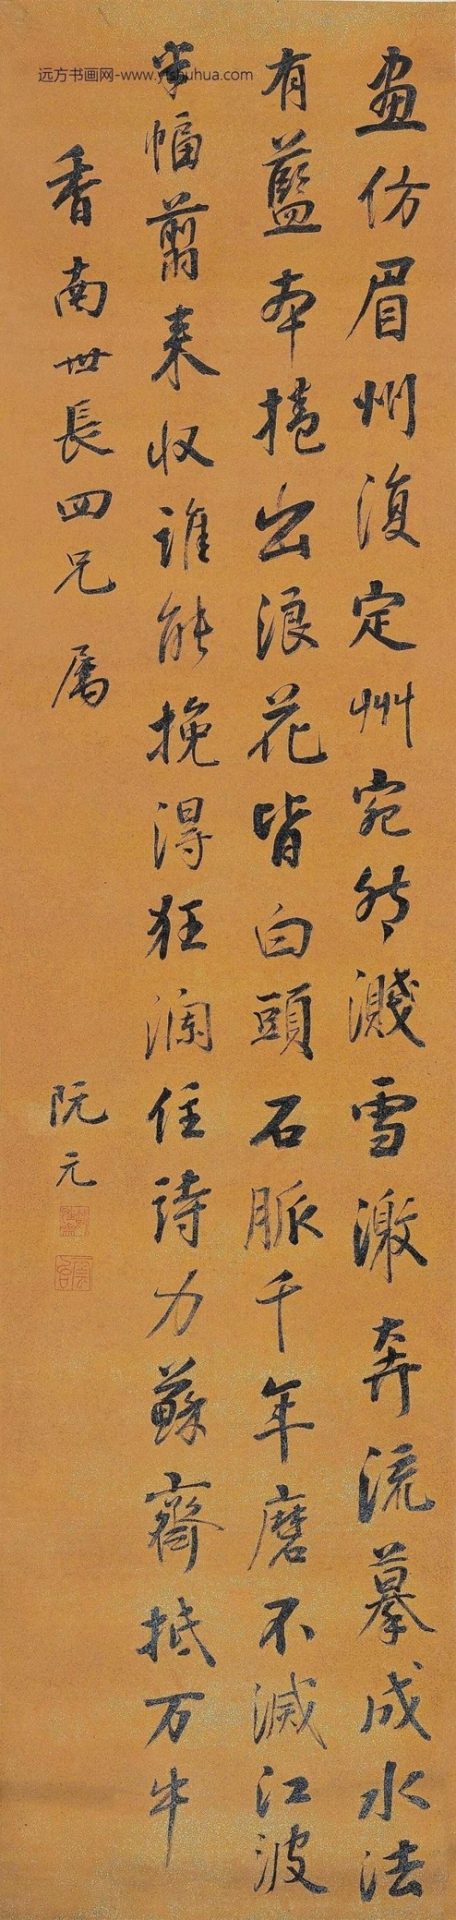 画仿眉州復定州宛然濺雪激奔流摹成水法
有藍本捲出浪花皆白頭石脈千年磨不滅江波
半幅翦来収誰能挽得狂瀾住詩力蘇齋抵万牛
香南世長四兄屬
阮元
远方书画网-www.yfshuhua.com